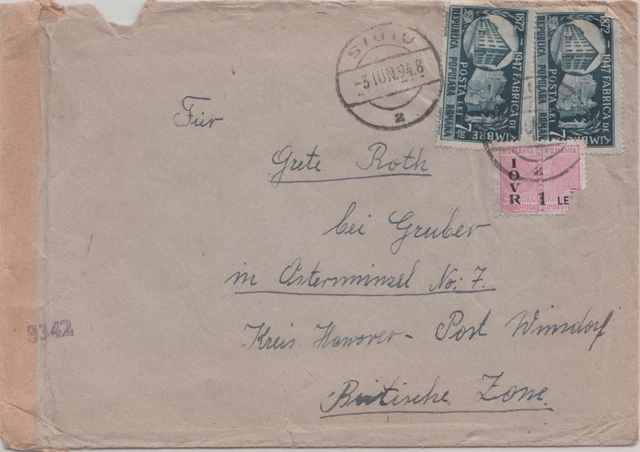 SIBIU
-3 IUN. 94.8
2
1872 - 1947 FABRICA DE TIMBRE
REPUBLICA POPULARA ROMANA
POSTA LEI 7 50
1872 - 1947 FABRICA DE TIMBRE
REPUBLICA POPULARA ROMANA
POSTA LEI 7
2
ROMANIA ROMANIA
IOVR
1 LEU
Für
Grete Roth
bei Gruber
in Osterminzel No: 7.
Kreis Hanover - Post Winsdorf
Britische Zone.
9342